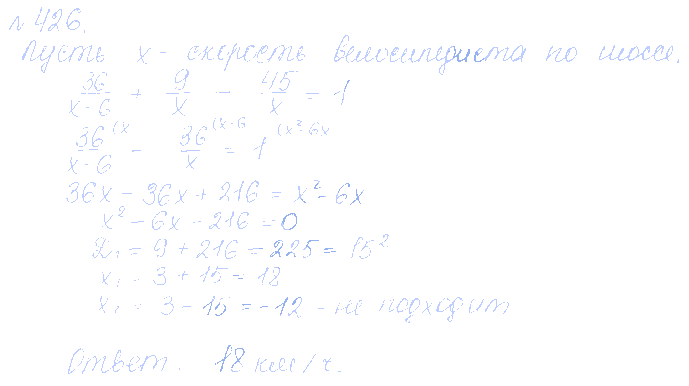 № 426.
Пусть x - скорость велосипедиста по шоссе.
36/(x-6) + 9/x - 45/x = 1
36/(x-6) (x - 36/x (x-6 = 1 (x²-6x
36x - 36x + 216 = x² - 6x
x² - 6x - 216 = 0
D₁ = 9 + 216 = 225 = 15²
x₁ = 3 + 15 = 18
x₁ = 3 - 15 = -12 - не подходит
Ответ. 18 км/ч.